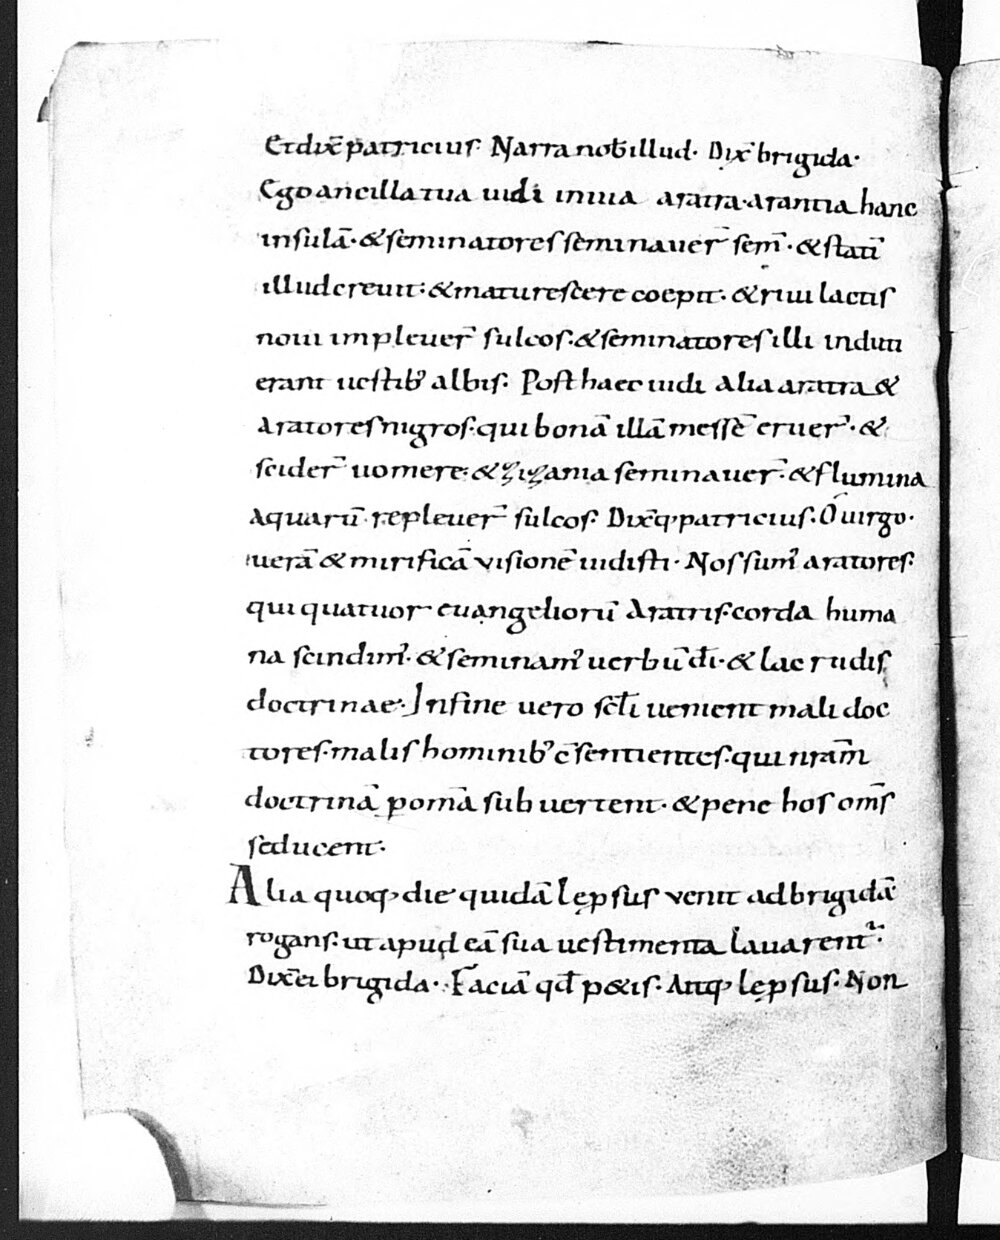 Et dix̄ patricius· Narra nob̄ illud· Dix̄ brigida·
Ego ancilla tua uidi in iua aratra· arantia hanc
insulā· & seminatores seminauer̄ sem̄· & statī
illud creuit· & maturescere coepit· & riui lactis
noui impleuer̄ sulcos· & seminatores illi induti
erant uestib; albis· Post haec uidi alia aratra &
aratores nigros· qui bonā illā messē eruer̄· &
scider̄ uomere· & zizania seminauer̄· & flumina
aquarū repleuer̄ sulcos· Dix̄q; patricius· O uirgo·
uerā & mirificā visionē uidisti· Nos sum' aratores·
qui quatuor euangeliorū aratris· corda huma
na scindim'· & seminam' uerbū dī· & lac rudis
doctrinae· In fine uero sc̄li uenient mali doc
tores· malis hominib; c̄sentientes· qui nr̄am
doctrinā p omā subuertent· & pene hos om̄s
seducent·
Alia quoq; die quidā lepsus venit ad brigidā
rogans· ut apud eā sua uestimenta lauarent᷑·
Dix̄ ei brigida· Faciā qđ p&is· Atq; lepsus· Non